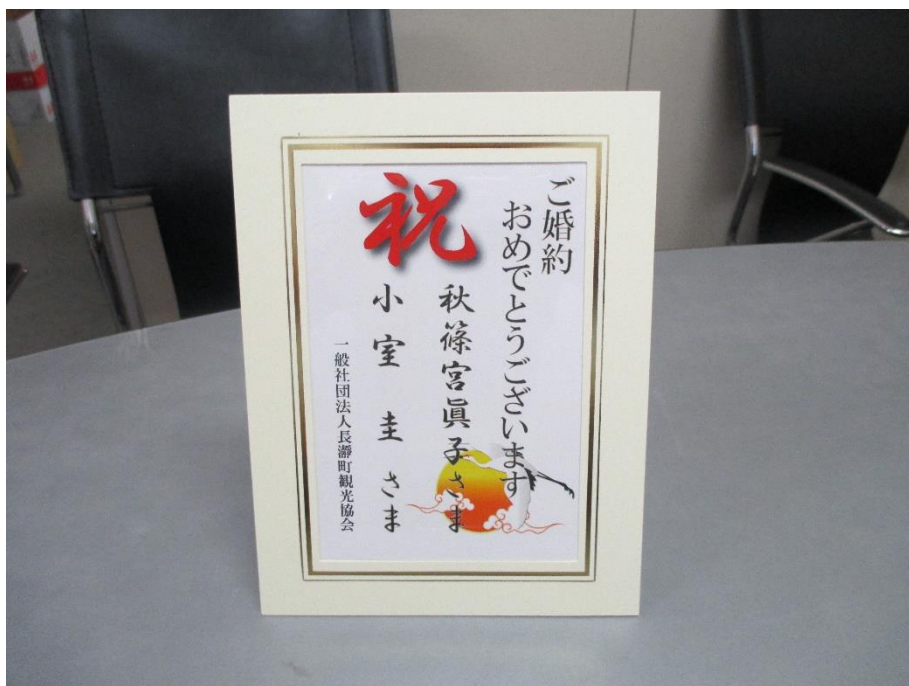 ご婚約
おめでとうございます
祝
秋篠宮眞子さま
小室圭さま
一般社団法人長瀞町観光協会